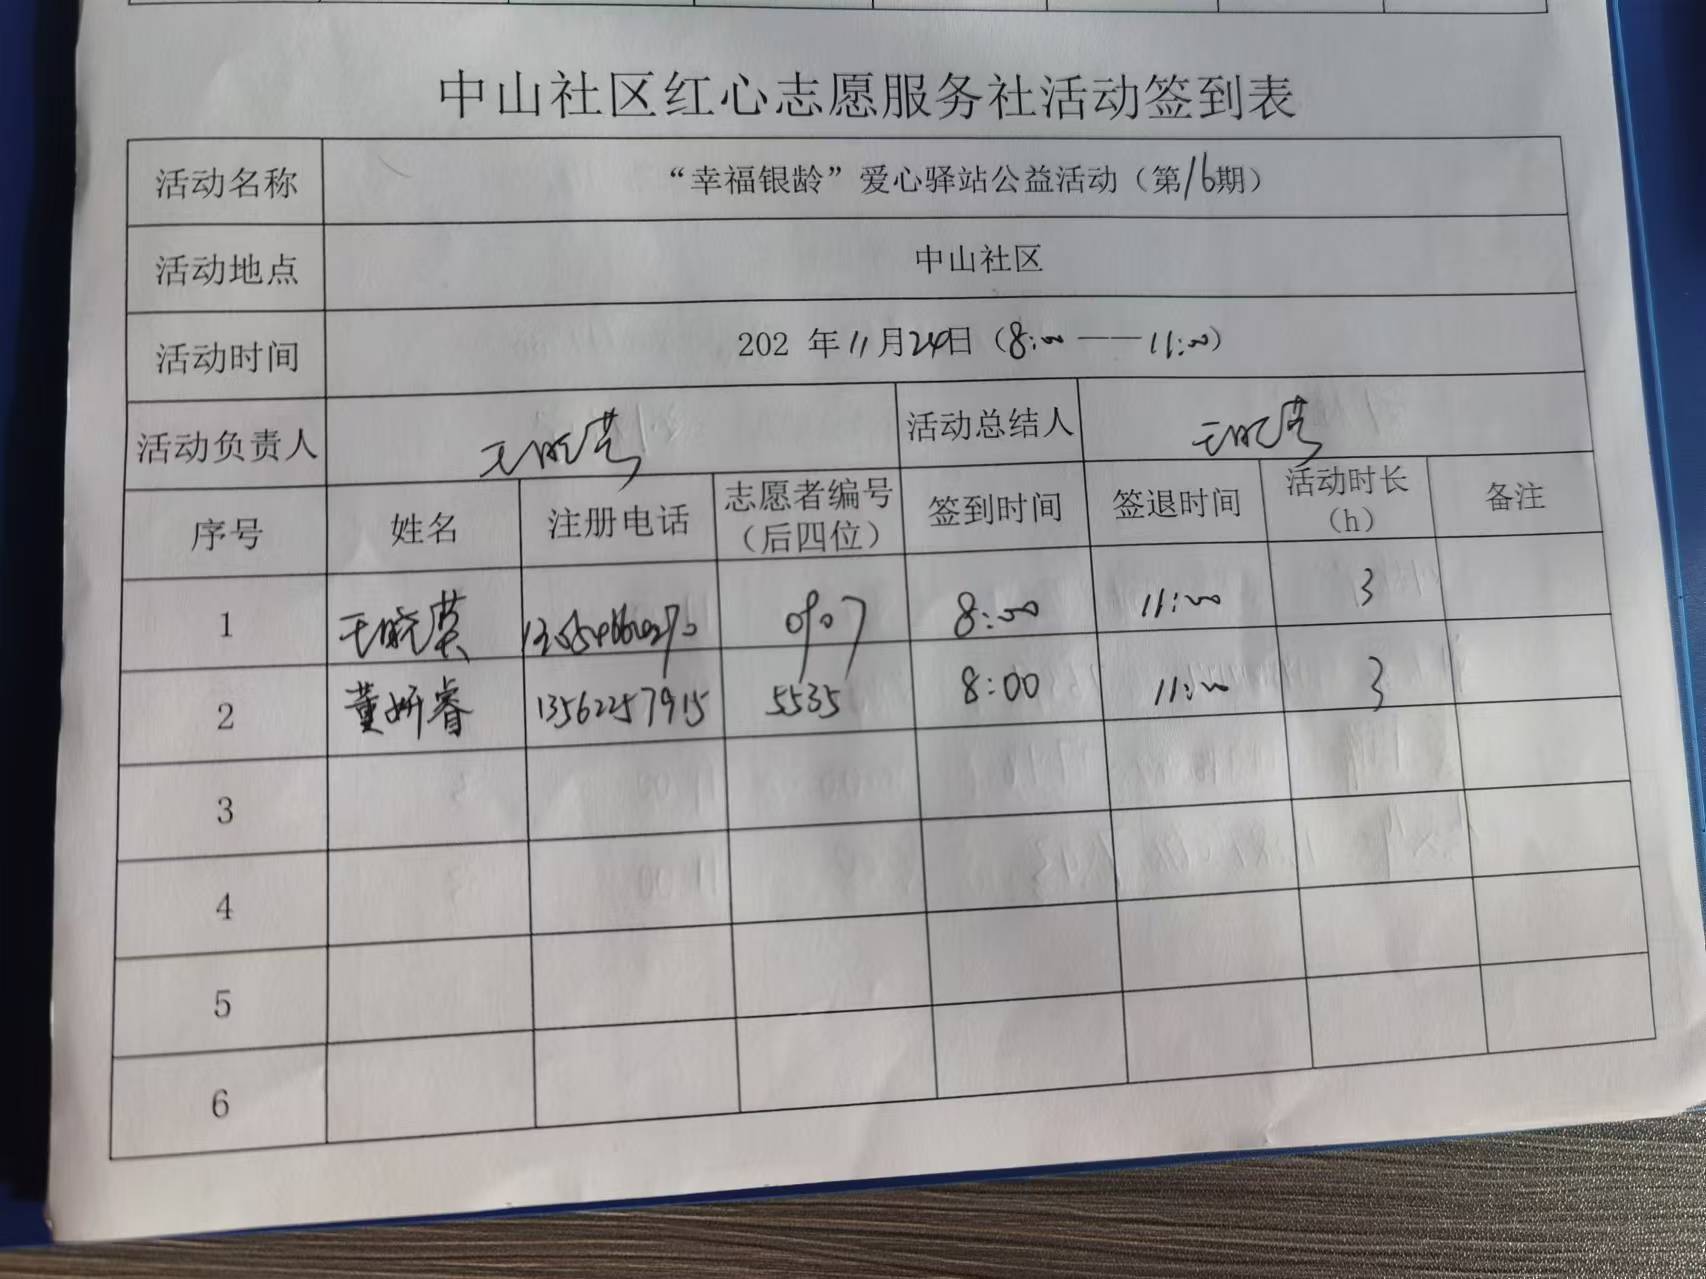 中山社区红心志愿服务社活动签到表
活动名称 “幸福银龄”爱心驿站公益活动（第16期）
活动地点 中山社区
活动时间 202 年11月24日（8:00——11:00）
活动负责人 王晓 活动总结人 王晓
序号 姓名 注册电话 志愿者编号（后四位） 签到时间 签退时间 活动时长（h） 备注
1 王晓 0907 8:00 11:00 3
2 董妍睿 13562257915 5535 8:00 11:00 3
3
4
5
6